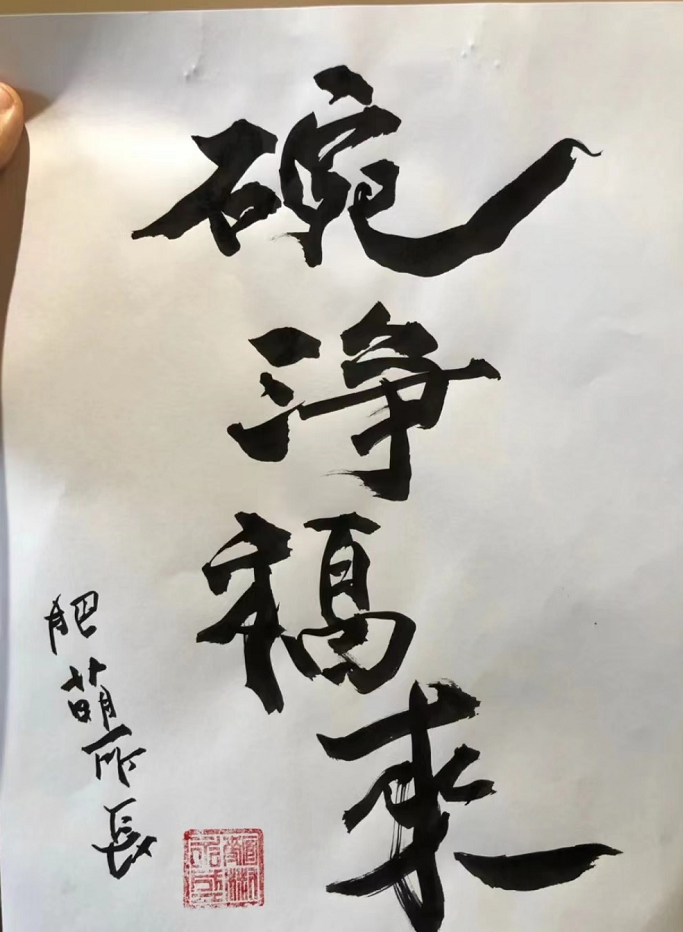 碗淨福来
肥萌所長